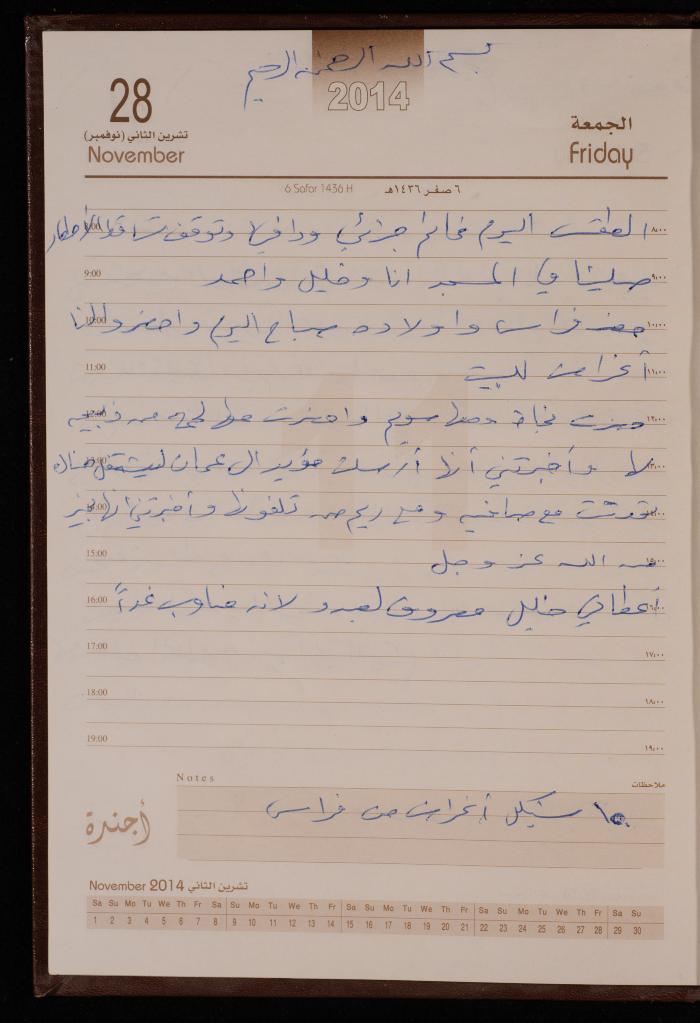 بسم الله الرحمن الرحيم
2014
28
تشرين الثاني (نوفمبر)
November
الجمعة
Friday
6 Safar 1436 H ٦ صفر ١٤٣٦هـ
٨:٠٠ الطقس اليوم غائم جزئي ودافئ وتوقف تساقط الأمطار
9:00 ٩:٠٠ صلينا في المسجد انا وخليل واحمد
10:00 ١٠:٠٠ حضر فراس واولاده صباح اليوم واحضروا لنا
11:00 ١١:٠٠ أغراض للبيت
12:00 ١٢:٠٠ حضرت نجاة ومعها مريم واحضرت معها لحمه من ذبيحه
١٣:٠٠ وأخبرتني أنها أرسلت مؤيد الى عمان ليشتغل هناك
14:00 تحدثت مع صافيه ومع ريم من تلفونها وأخبرتني انها بخير
15:00 ١٥:٠٠ من الله عز وجل
16:00 ١٦:٠٠ أعطاني خليل مصروف لعبدو لانه مناوب غداً
17:00 ١٧:٠٠
18:00 ١٨:٠٠
19:00 ١٩:٠٠
Notes ملاحظات
شيكل أغراض من فراس
أجندة
November 2014 تشرين الثاني
Sa Su Mo Tu We Th Fr Sa Su Mo Tu We Th Fr Sa Su Mo Tu We Th Fr Sa Su Mo Tu We Th Fr Sa Su
1 2 3 4 5 6 7 8 9 10 11 12 13 14 15 16 17 18 19 20 21 22 23 24 25 26 27 28 29 30